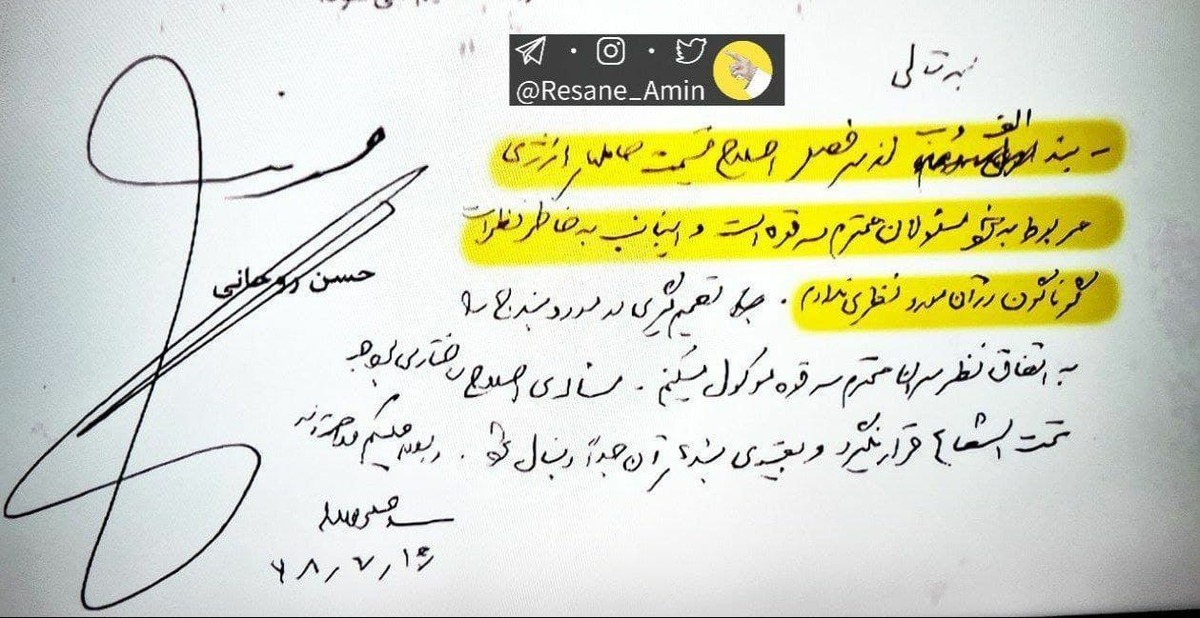 @Resane_Amin
بسمه تعالی
- بند الف و ب از سرفصل اصلاح قیمت حاملهای انرژی
مربوط به مسئولان محترم سه قوه است و اینجانب به خاطر نظرات
گوناگون در آن مورد نظری ندارم. تصمیم‌گیری در مورد بند ج را
به اتفاق نظر سران محترم سه قوه موکول میکنم. اصلاح ساختاری بودجه
تحت الشعاع قرار نگیرد و بقیه‌ی بندهای آن جداً دنبال شود. والسلام علیکم و رحمةالله
حسن روحانی
سید
۹۸,۷,۱۶